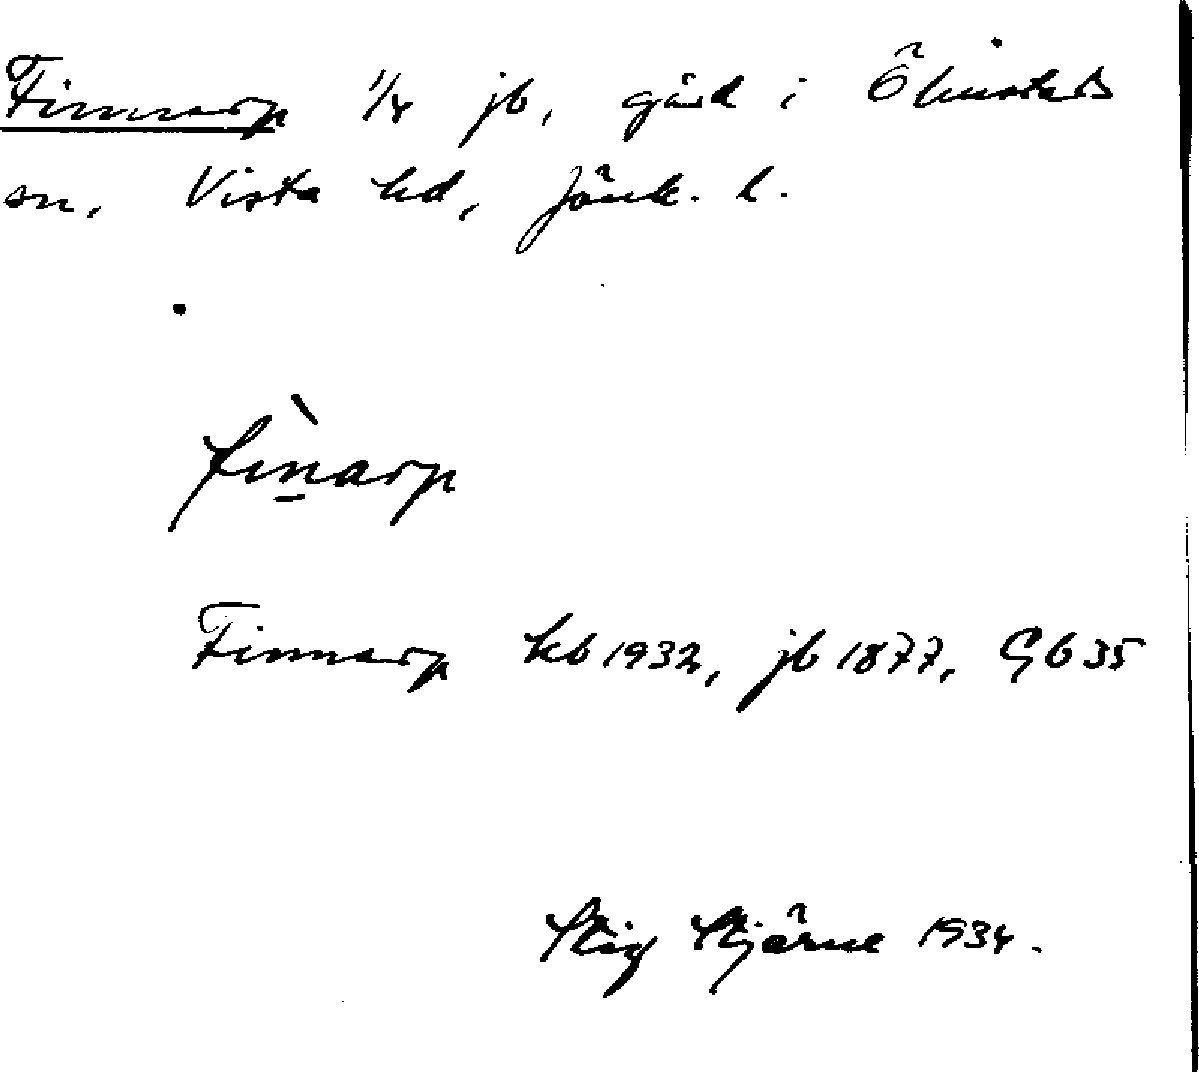 Finnarp 1/4 jb, gård i Ölmstads
sn, Vista hd, Jönk. l.
fìn̲arp
Finnarp kb 1932, jb 1877, Gb 35
Stig Stjärne 1934.